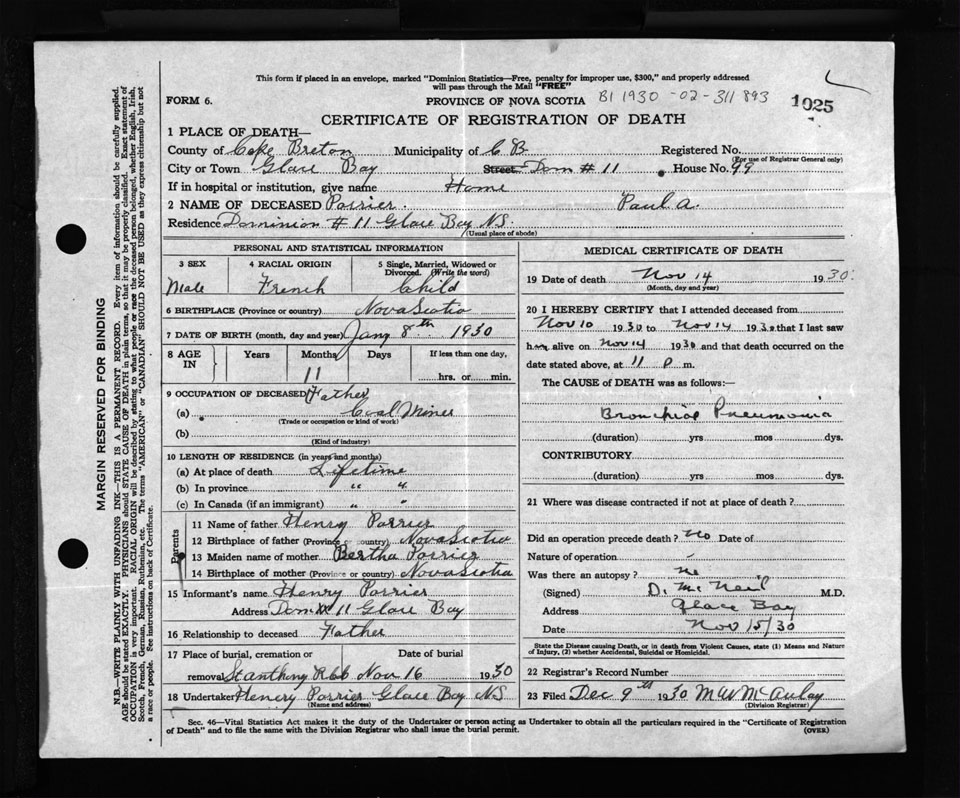 This form if placed in an envelope, marked "Dominion Statistics—Free, penalty for improper use, $300," and properly addressed
will pass through the Mail "FREE"
FORM 6.
PROVINCE OF NOVA SCOTIA
B1 1930 -02-311 893
1025
CERTIFICATE OF REGISTRATION OF DEATH
1 PLACE OF DEATH—
County of Cape Breton Municipality of C B Registered No.
(For use of Registrar General only)
City or Town Glace Bay Street Dom # 11 House No. 99
If in hospital or institution, give name Home
2 NAME OF DECEASED Porrier. Paul A.
Residence Dominion # 11 Glace Bay N.S.
(Usual place of abode)
PERSONAL AND STATISTICAL INFORMATION
3 SEX 4 RACIAL ORIGIN 5 Single, Married, Widowed or
Divorced. (Write the word)
Male French Child
6 BIRTHPLACE (Province or country) Nova Scotia
7 DATE OF BIRTH (month, day and year) Jany 8th 1930
8 AGE
IN
Years Months Days If less than one day,
11 hrs. or min.
9 OCCUPATION OF DECEASED Father
(a) Coal Miner
(Trade or occupation or kind of work)
(b)
(Kind of industry)
10 LENGTH OF RESIDENCE (in years and months)
(a) At place of death Lifetime
(b) In province " "
(c) In Canada (if an immigrant) "
Parents
11 Name of father Henry Porrier
12 Birthplace of father (Province or country) Nova Scotia
13 Maiden name of mother Bertha Porrier
14 Birthplace of mother (Province or country) Nova Scotia
15 Informant's name Henry Porrier
Address Dom # 11 Glace Bay
16 Relationship to deceased Father
17 Place of burial, cremation or Date of burial
removal St Anthony Nov 16 1930
18 Undertaker Henery Porrier Glace Bay N.S.
(Name and address)
MEDICAL CERTIFICATE OF DEATH
19 Date of death Nov 14 1930
(Month, day and year)
20 I HEREBY CERTIFY that I attended deceased from
Nov 10 1930 to Nov 14 1930 that I last saw
him alive on Nov 14 1930 and that death occurred on the
date stated above, at 11 P m.
The CAUSE of DEATH was as follows:—
Bronchial Pneumonia
(duration) yrs mos dys.
CONTRIBUTORY
(duration) yrs mos dys.
21 Where was disease contracted if not at place of death?
Did an operation precede death? No Date of
Nature of operation
Was there an autopsy? No
(Signed) D. McNeil M.D.
Address Glace Bay
Date Nov 15/30
State the Disease causing Death, or in death from Violent Causes, state (1) Means and Nature
of Injury, (2) whether Accidental, Suicidal or Homicidal.
22 Registrar's Record Number
23 Filed Dec 9th 1930 McAulay
(Division Registrar)
Sec. 46—Vital Statistics Act makes it the duty of the Undertaker or person acting as Undertaker to obtain all the particulars required in the "Certificate of Registration
of Death" and to file the same with the Division Registrar who shall issue the burial permit.
(OVER)
MARGIN RESERVED FOR BINDING
N.B.—WRITE PLAINLY WITH UNFADING INK—THIS IS A PERMANENT RECORD. Every item of information should be carefully supplied.
AGE should be stated EXACTLY. PHYSICIANS should STATE CAUSE OF DEATH in plain terms, so that it may be properly classified. Exact statement of
OCCUPATION is very important. RACIAL ORIGIN will be described by stating to what people or race the deceased person belonged, whether English, Irish,
Scotch, French, German, Russian, Ruthenian, etc. The terms "AMERICAN" or "CANADIAN" SHOULD NOT BE USED as they express citizenship but not
a race or people. See instructions on back of Certificate.